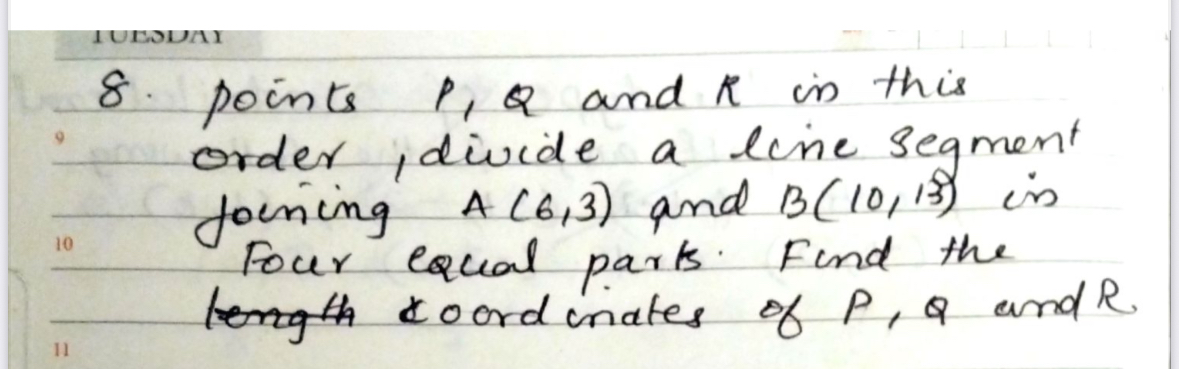 TUESDAY
8. points P, Q and R in this
9 order, divide a line segment
joining A (6,3) and B(10,13) in
10 Four equal parts. Find the
length coordinates of P, Q and R.
11